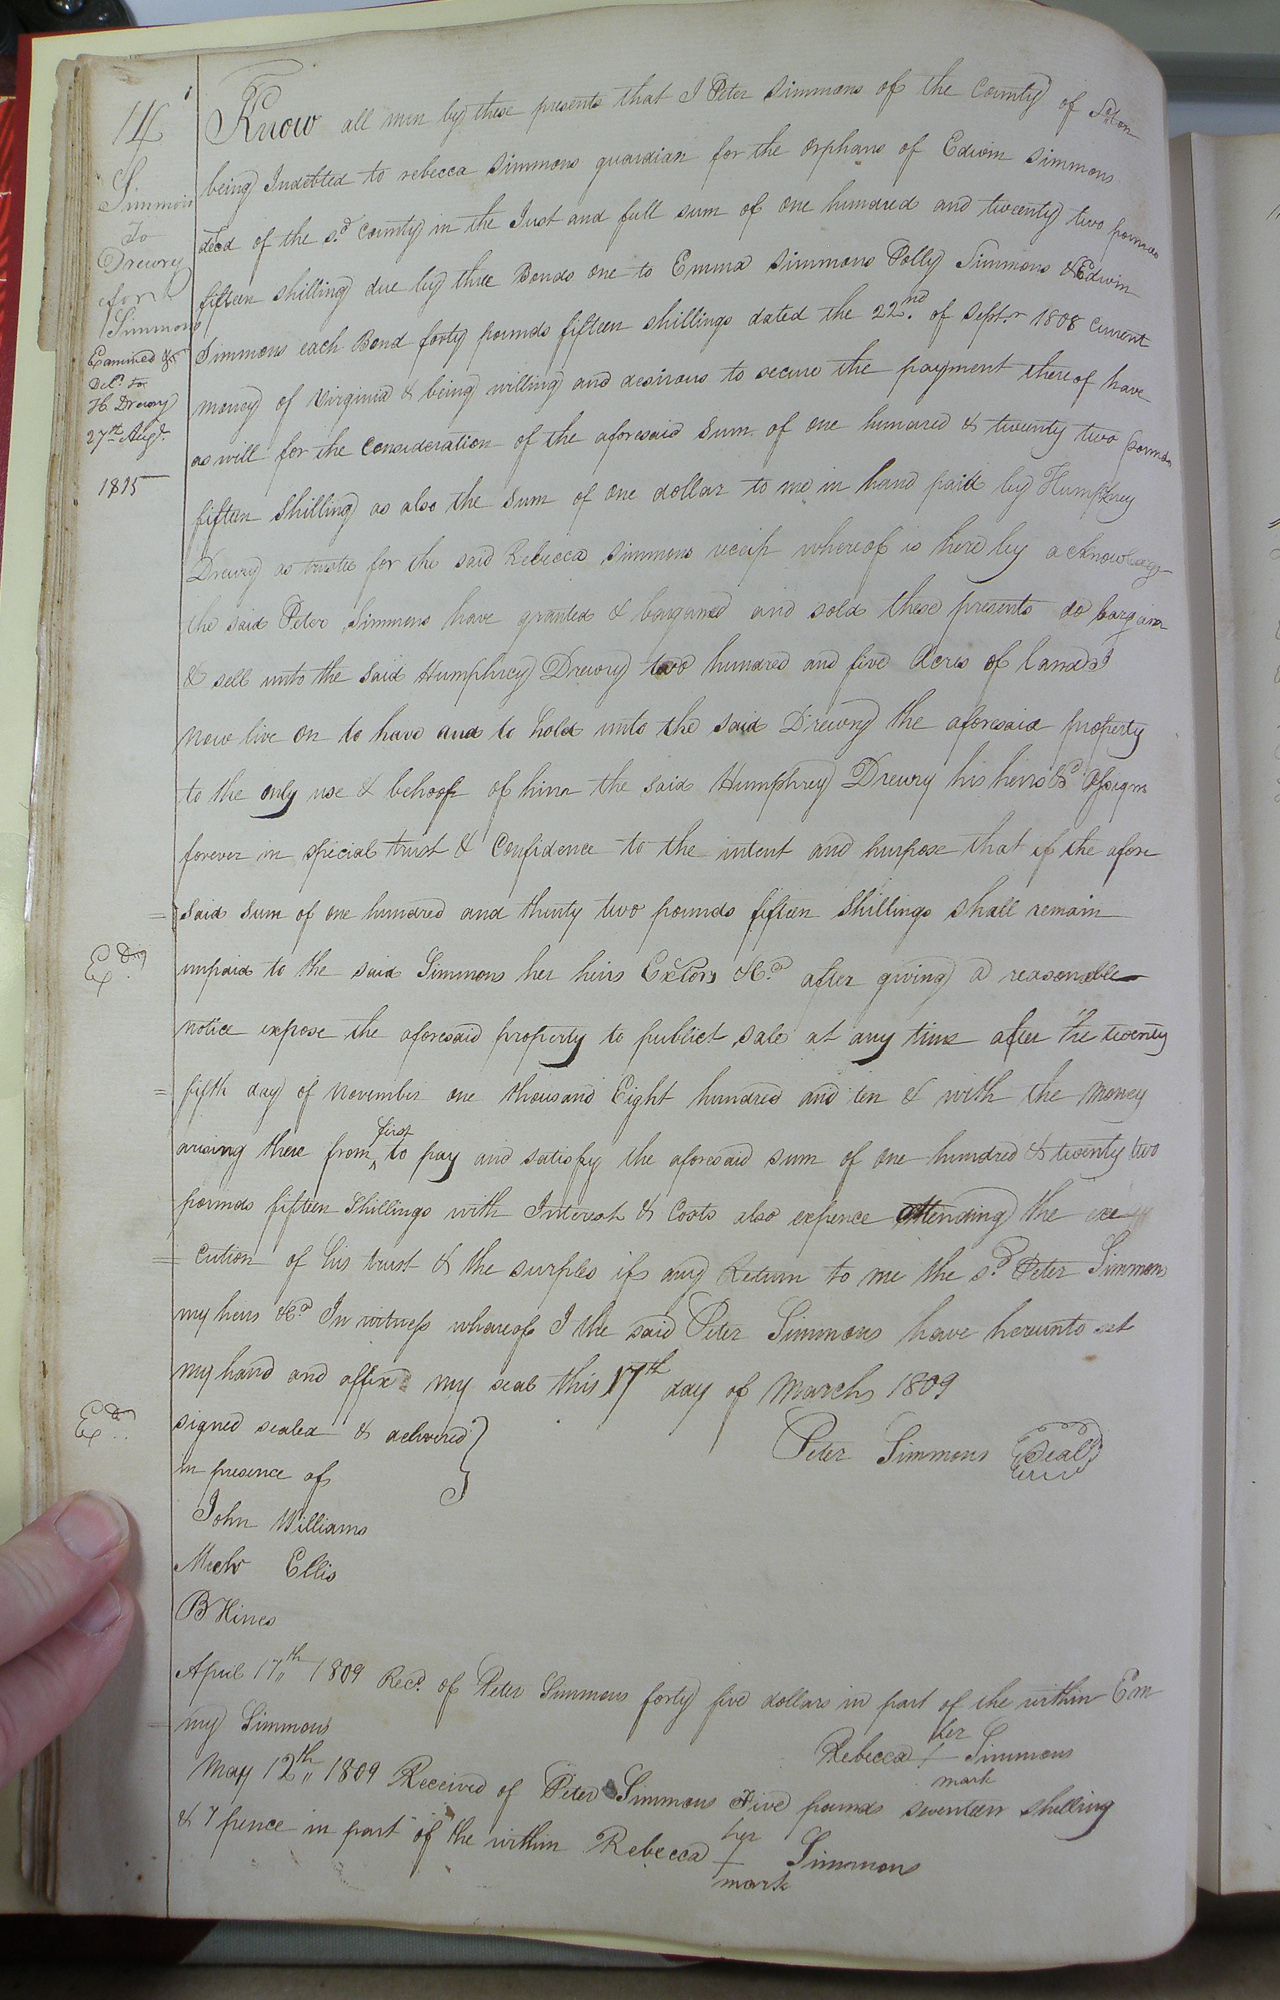 14
Simmons
To
Drewry
for
Simmons
Examined &
Del.d to
H. Drewry
27th Augt.
1815
Know all men by these presents that I Peter Simmons of the County of
being Indebted to rebecca Simmons guardian for the orphans of Edwin Simmons
decd of the sd. County in the Just and full sum of one hundred and twenty two pounds
fifteen shilling due by three Bonds one to Emma Simmons Polly Simmons & Edwin
Simmons each Bond forty pounds fifteen shillings dated the 22nd. of Septr. 1808 Current
money of Virginia & being willing and desirous to secure the payment thereof have
as will for the Consideration of the aforesaid Sum of one hundred & twenty two pounds
fifteen Shilling as also the Sum of one dollar to me in hand paid by Humphrey
Drewry as trustee for the said Rebecca Simmons receip whereof is here by acknowledg
the said Peter Simmons have granted & bargained and sold these presents do bargain
& sell unto the said Humphrey Drewry two hundred and five Acres of land I
now live on to have and to hold unto the said Drewry the aforesaid property
to the only use & behoof of him the said Humphrey Drewry his heirs &c Assigns
forever in special trust & Confidence to the intent and purpose that if the afore
= said sum of one hundred and thirty two pounds fifteen Shillings shall remain
Exd.
unpaid to the said Simmons her heirs Extors &c after giving a reasonable
notice expose the aforesaid property to publict sale at any time after the twenty
= fifth day of November one thousand Eight hundred and ten & with the money
arising there from ^first to pay and satisfy the aforesaid sum of one hundred & twenty two
pounds fifteen Shillings with Interest & Costs also expence attending the exe
= cution of his trust & the surples if any Return to me the sd Peter Simmons
my heirs &c In witness whareof I the said Peter Simmons have herunto set
my hand and affixd my seal this 17th day of March 1809
Exd.
signed sealed & delivered } Peter Simmons Seal
in presence of
John Williams
Michr Ellis
B Hines
April 17th 1809 Recd. of Peter Simmons forty five dollars in part of the within Em
= my Simmons Rebecca her + mark Simmons
May 12th 1809 Received of Peter Simmons Five pounds seventeen shelling
& 7 pence in part of the within Rebecca her + mark Simmons